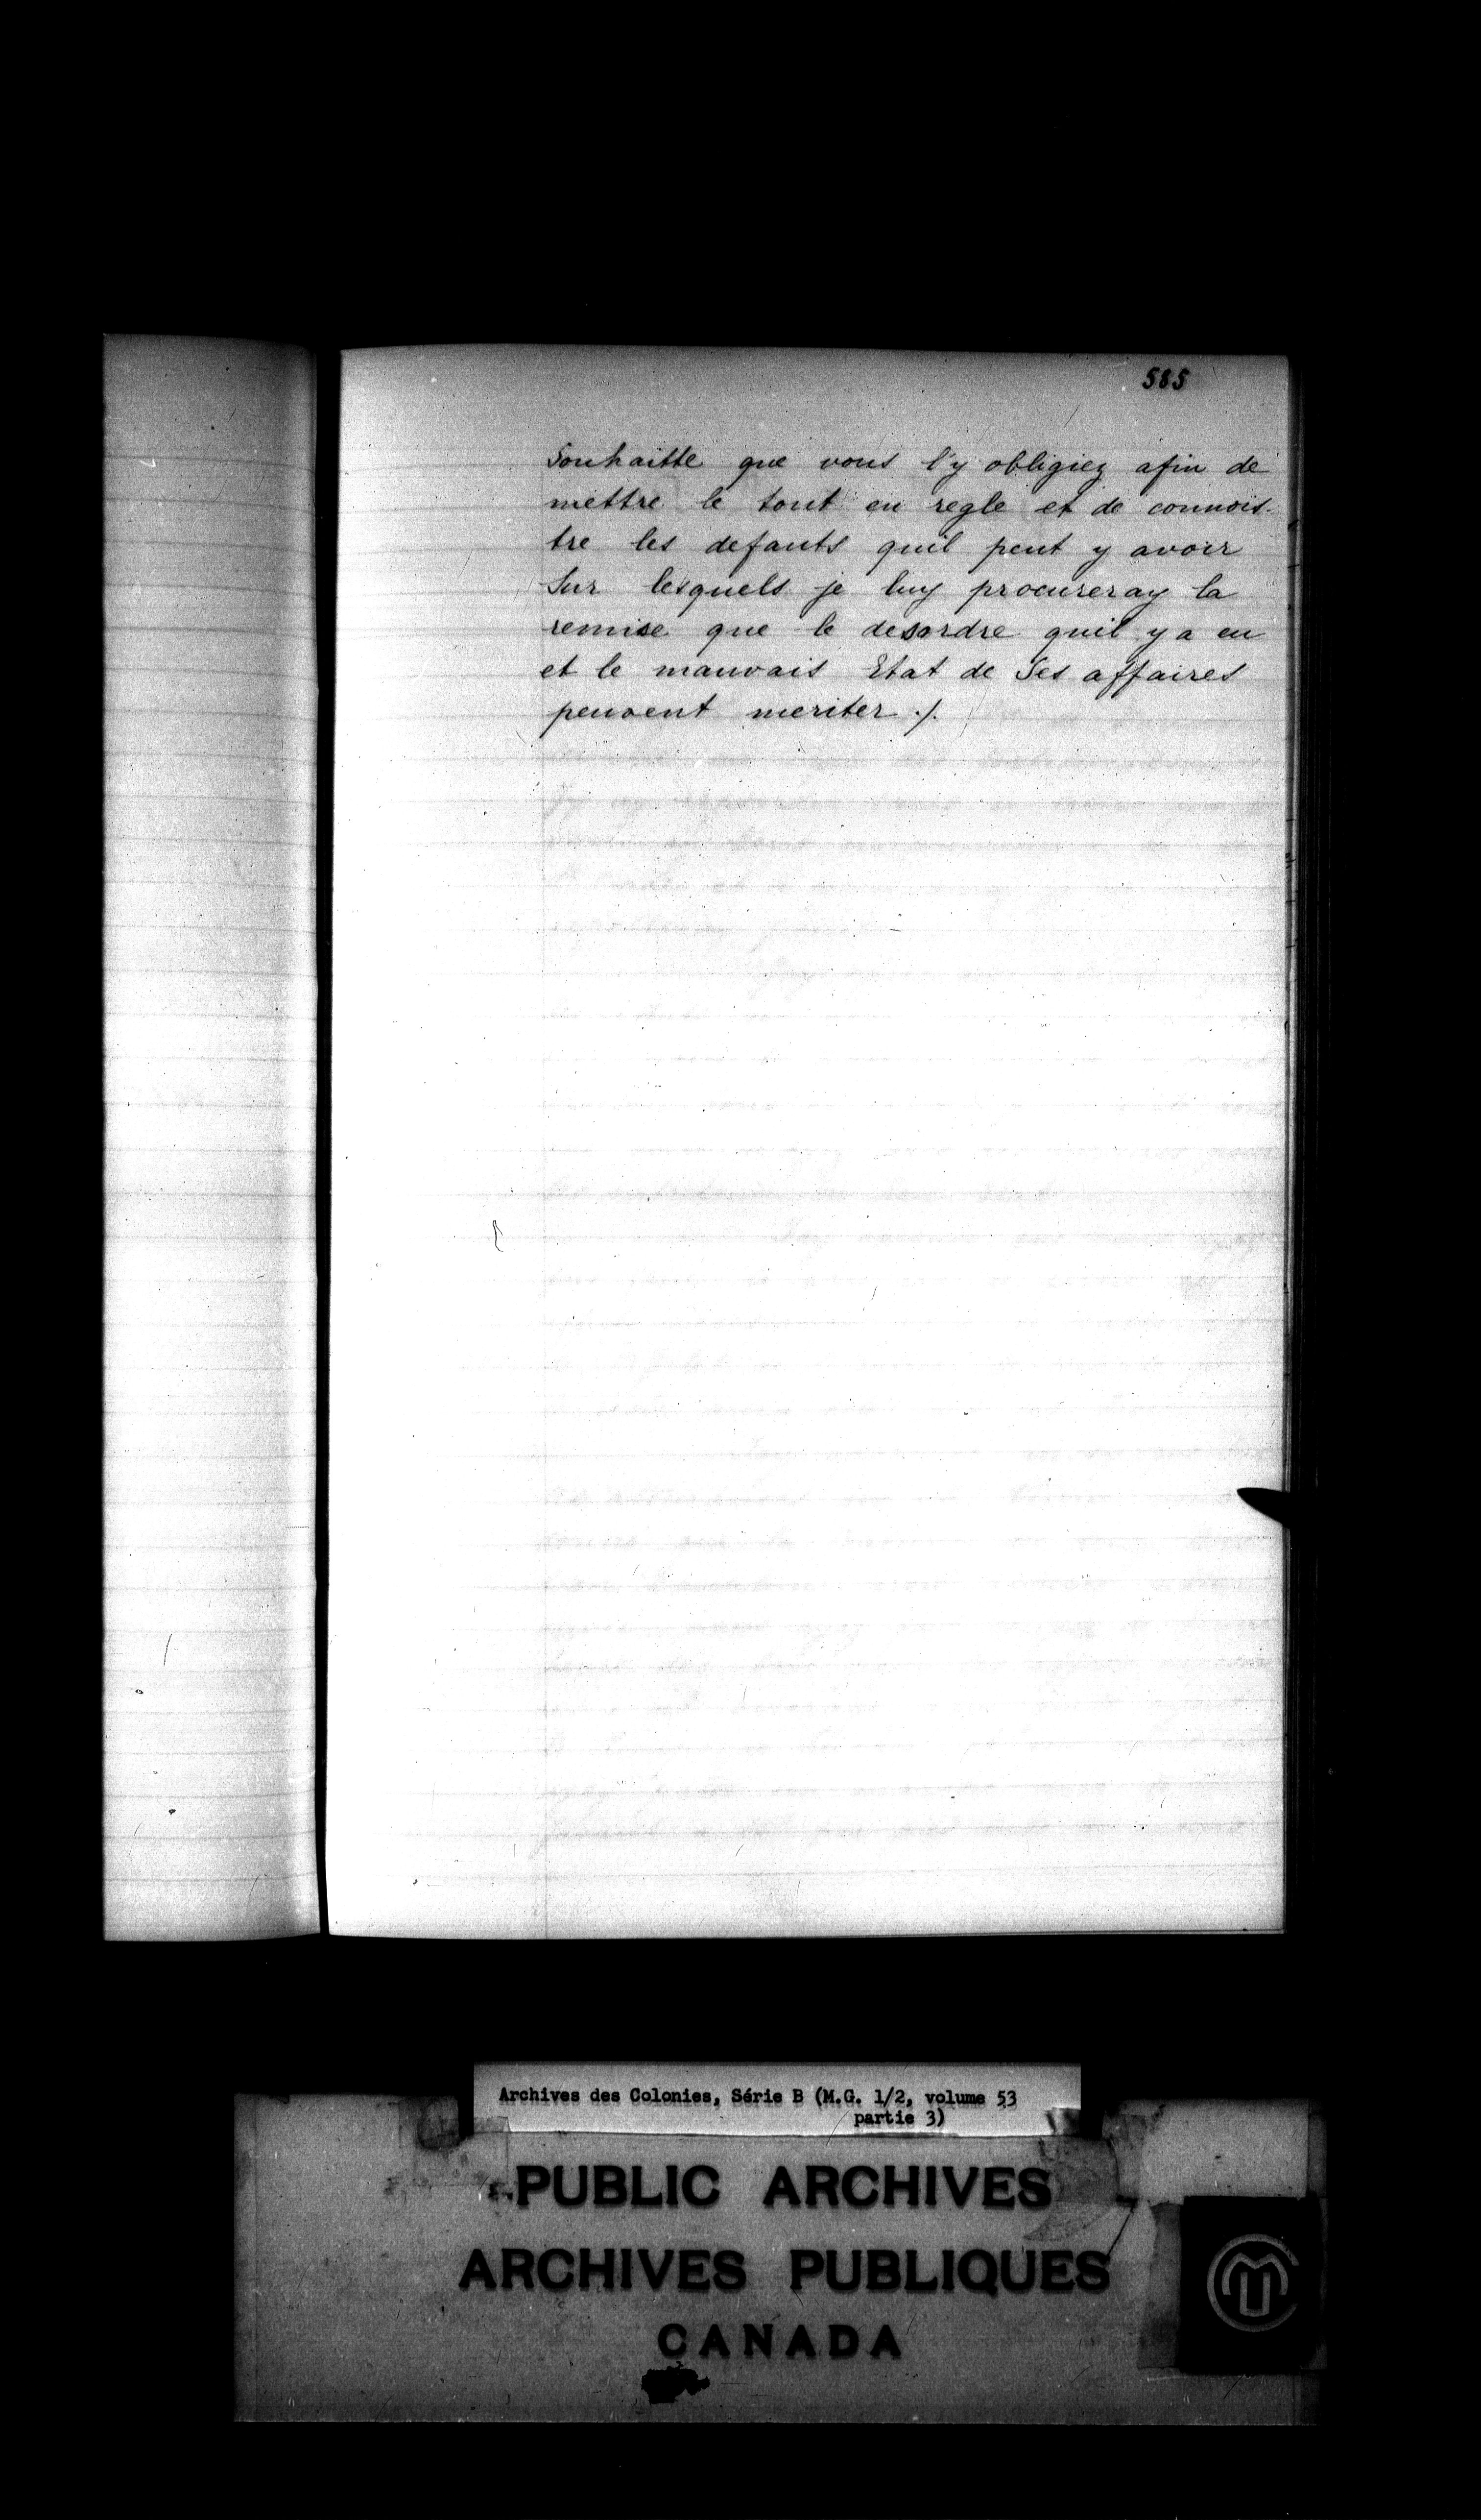 585
Souhaitte que vous l'y obligiez afin de
mettre le tout en regle et de connois-
tre les defauts quil peut y avoir
Sur lesquels je luy procureray la
remise que le desordre quil y a eu
et le mauvais Etat de Ses affaires
peuvent meriter ./.
Archives des Colonies, Série B (M.G. 1/2, volume 53
partie 3)
PUBLIC ARCHIVES
ARCHIVES PUBLIQUES
CANADA